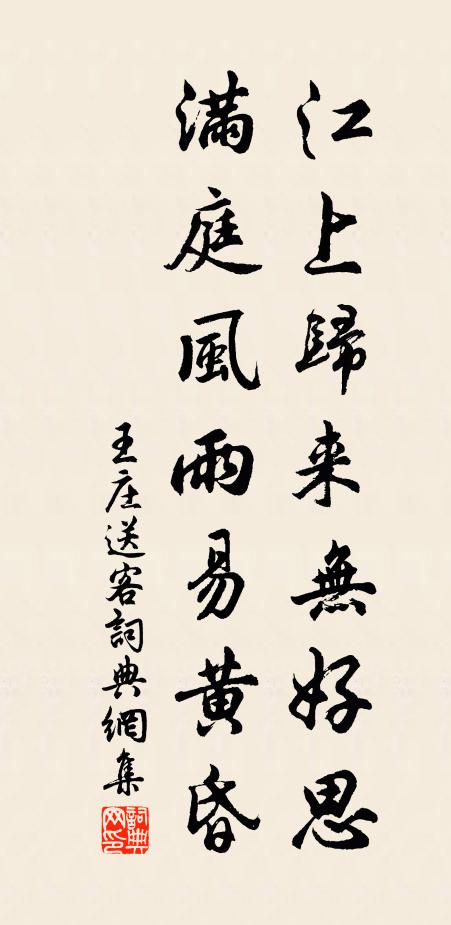 江上歸来無好思
滿庭風雨易黄昏
王庄送客詞典網集
詞典網印